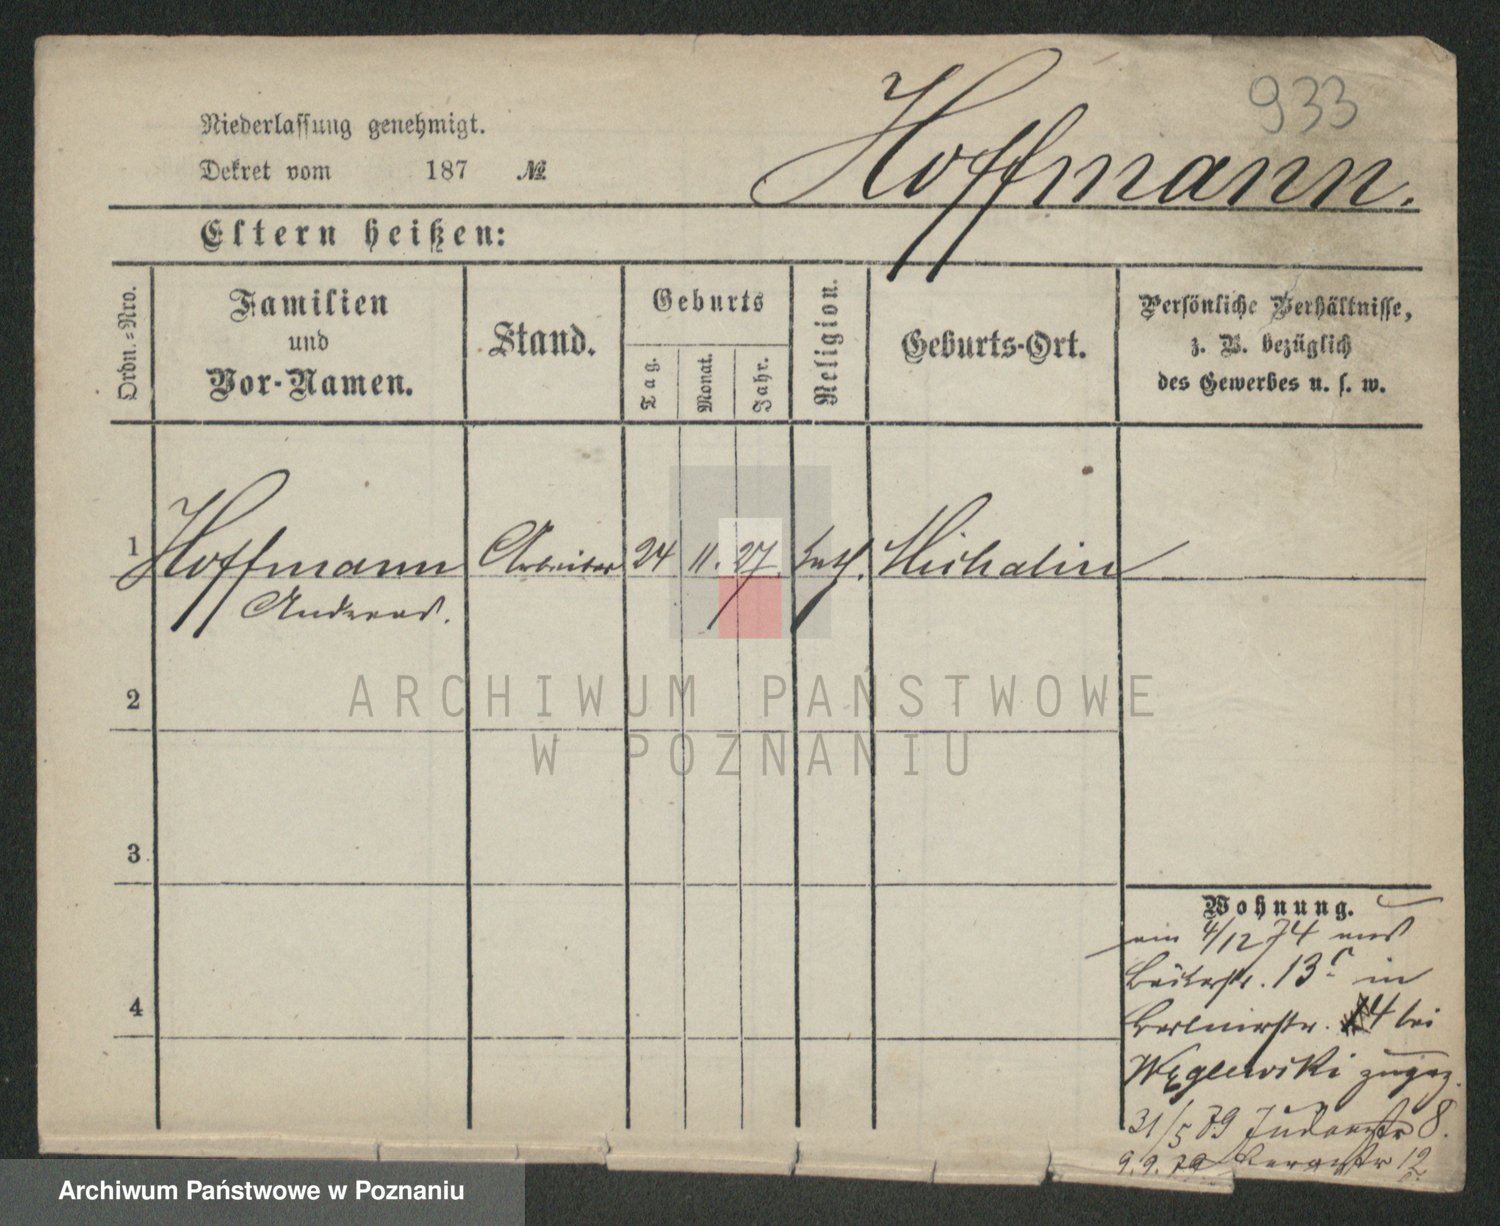 933
Hoffmann.
Niederlassung genehmigt.
Dekret vom 187 №
Eltern heißen:
Ordn.-Nro.
Familien
und
Vor-Namen.
Stand.
Geburts
Tag.
Monat.
Jahr.
Religion.
Geburts-Ort.
Persönliche Verhältnisse,
z. B. bezüglich
des Gewerbes u. s. w.
1 Hoffmann Arbeiter 24 11. 27. kath. Michalin
Andreas.
2
ARCHIWUM PAŃSTWOWE
W POZNANIU
3
4
Wohnung.
4/12 74 aus
Bäckerstr. 13 in
Berlinerstr. 14 bei
Węglewski zugez.
31/5 79 Judenstr 8.
9.9. 79 12
Archiwum Państwowe w Poznaniu